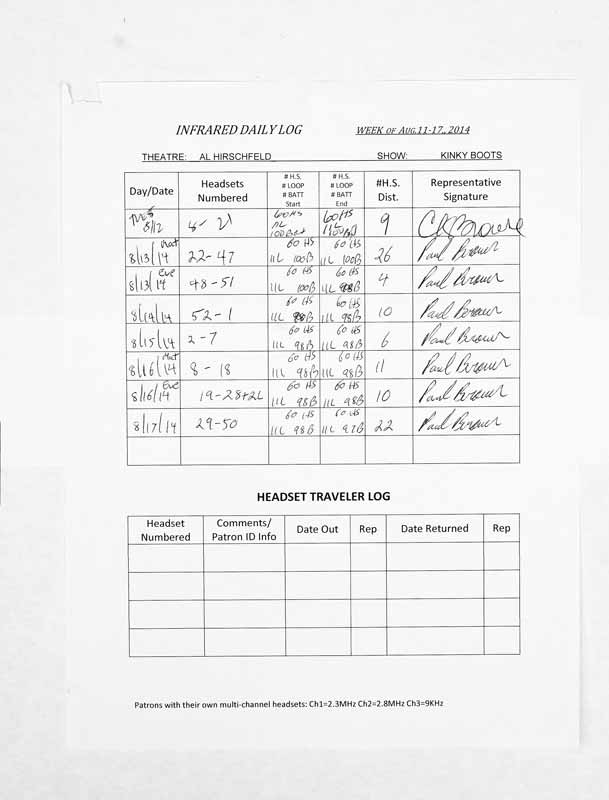 INFRARED DAILY LOG WEEK OF AUG.11-17., 2014
THEATRE: AL HIRSCHFELD SHOW: KINKY BOOTS
Day/Date Headsets Numbered # H.S. # LOOP # BATT Start # H.S. # LOOP # BATT End #H.S. Dist. Representative Signature
8/12 8-21 60HS 11L 100Bat 60HS 11L 9
8/13/14 Mat 22-47 60 HS 11L 100B 60 HS 11L 100B 26 Paul Brower
8/13/14 Eve 48-51 60 HS 11L 100B 60 HS 11L 98B 4 Paul Brower
8/14/14 52-1 60 HS 11L 98B 60 HS 11L 98B 10 Paul Brower
8/15/14 2-7 60 HS 11L 98B 60 HS 11L 98B 6 Paul Brower
8/16/14 Mat 8-18 60 HS 11L 98B 60 HS 11L 98B 11 Paul Brower
8/16/14 Eve 19-28+2L 60 HS 11L 98B 60 HS 11L 98B 10 Paul Brower
8/17/14 29-50 60 HS 11L 98B 60 HS 11L 97B 22 Paul Brower
HEADSET TRAVELER LOG
Headset Numbered Comments/ Patron ID Info Date Out Rep Date Returned Rep
Patrons with their own multi-channel headsets: Ch1=2.3MHz Ch2=2.8MHz Ch3=9KHz